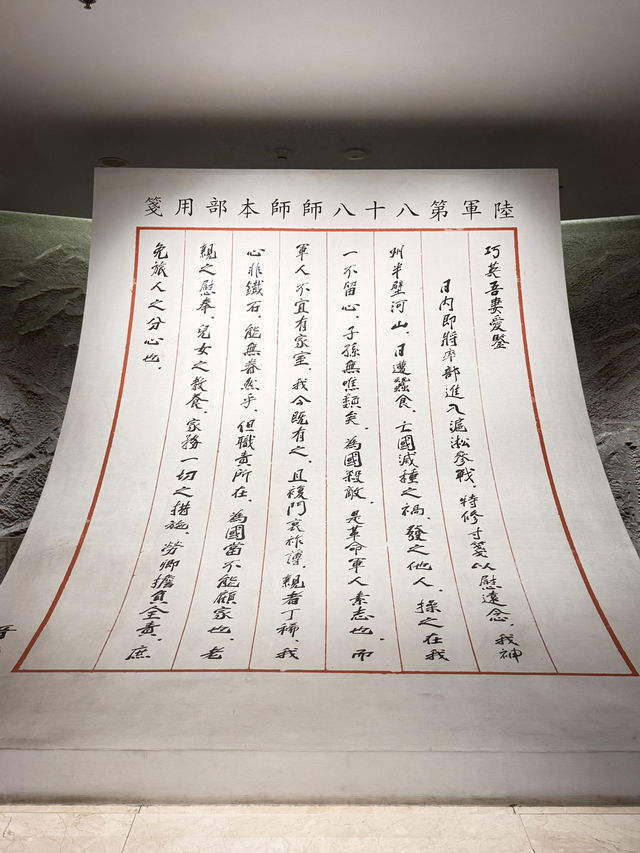 陸軍第八十八師師本部用箋
巧英吾妻愛鑒
日内即將率部進入滬淞參戰，特修寸箋以慰遠念。我神
州半壁河山，日遭蠶食，亡國滅種之禍，發之他人，操之在我
一不留心，子孫無噍類矣。為國殺敵，是革命軍人素志也，而
軍人不宜有家室，我今既有之，且複門衰祚薄，親者丁稀，我
心非鐵石，能無眷然乎，但職責所在，為國當不能顧家也，老
親之慰奉，兒女之教養，家務一切之措施，勞卿擔負全責，庶
免旅人之分心也。